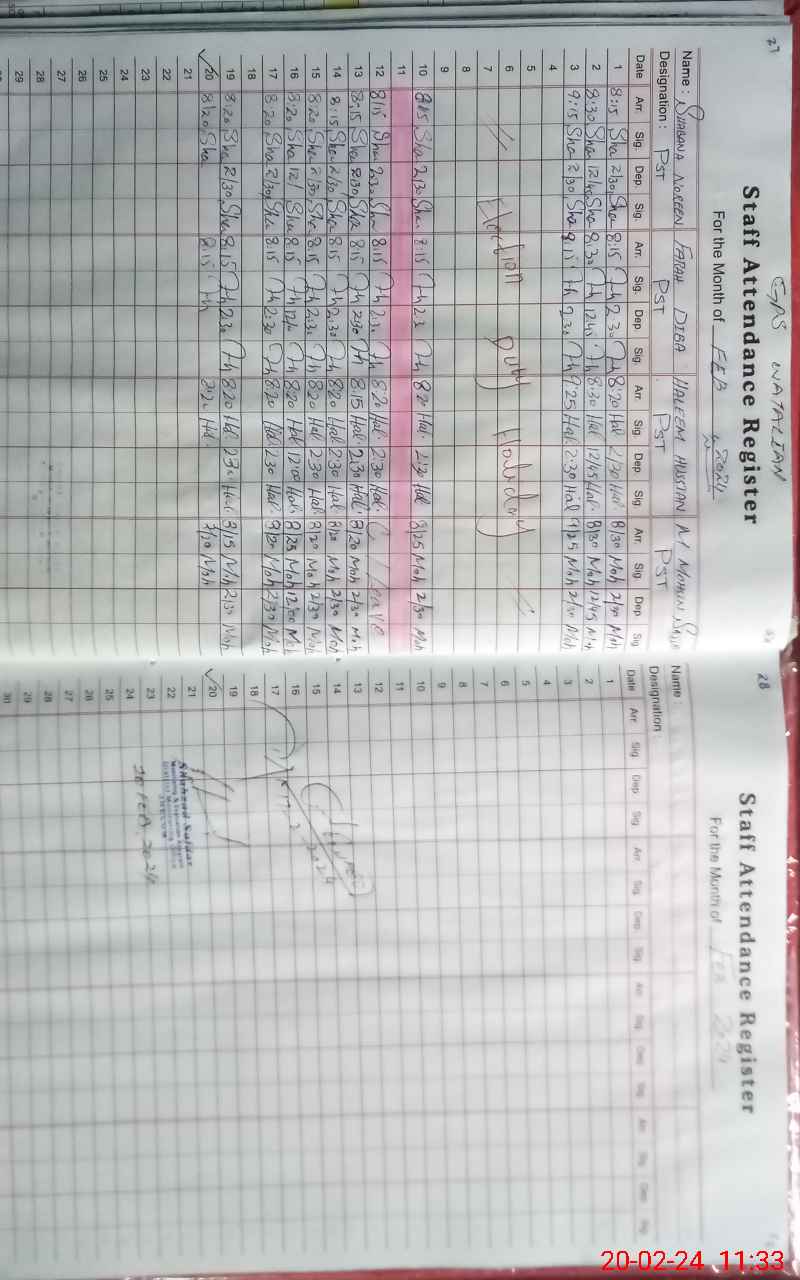 27
GPS WATALIAN
Staff Attendance Register
For the Month of FEB 2024
Name : SHABANA NOREEN FARAH DIBA HALEEM HUSSIAN M MOHIN
Designation : PST PST PST PST
Date Arr. Sig. Dep. Sig. Arr. Sig. Dep Sig. Arr. Sig. Dep Sig. Arr. Sig. Dep Sig
1 8:15 Sha 2/30 Sha 8:15 Fh 2:30 Fh 8:20 Hal 2/30 Hal. 8/30 Moh 2/30 Moh
2 8:30 Sha 12/45 Sha 8:30 Fh 12:45 Fh 8:30 Hal 12/45 Hal. 8/30 Moh 12/45 Moh
3 9:15 Sha 2/30 Sha 9:15 Fh 2:30 Fh 9:25 Hal 2:30 Hal 9/25 Moh 2/30 Moh
4
5
6 Election Duty Holiday
7
8
9
10 8:15 Sha 2/30 Sha 8:15 Fh 2:3 Fh 8:20 Hal. 2:30 Hal 8/25 Moh 2/30 Moh
11
12 8/15 Sha 2:30 Sha 8:15 Fh 2:30 Fh 8:20 Hal. 2:30 Hal. C/Leave
13 8:15 Sha 2/30 Sha 8:15 Fh 2:30 Fh 8:15 Hal. 2:30 Hal. 8/20 Moh 2/30 Moh
14 8:15 Sha 2/30 Sha 8:15 Fh 2:30 Fh 8:20 Hal 2:30 Hal 8/20 Moh 2/30 Moh
15 8:20 Sha 2/30 Sha 8:15 Fh 2:30 Fh 8:20 Hal 2:30 Hal 8/20 Moh 2/30 Moh
16 8:20 Sha 12/ Sha 8:15 Fh 12/ Fh 8:20 Hal 12:00 Hal. 8/25 Moh 12/00 Moh
17 8:20 Sha 2/30 Sha 8:15 Fh 2:30 Fh 8:20 Hal 2:30 Hal. 8/20 Moh 2/30 Moh
18
19 8:20 Sha 2/30 Sha 8:15 Fh 2:30 Fh 8:20 Hal. 2:30 Hal. 8/15 Moh 2/30 Moh
20 8:20 Sha 8:15 Fh 8:20 Hal. Moh
21
22
23
24
25
26
27
28
29
28
Staff Attendance Register
For the Month of Feb 2024
Name :
Designation :
Date Arr. Sig. Dep. Sig. Arr. Sig. Dep. Sig. Arr. Sig. Dep. Sig. Arr. Sig. Dep. Sig.
1
2
3
4
5
6
7
8
9
10
11
12
13
14
15
16
17
18
19
20
21
22
23
24
25
26
27
28
29
30
2024
Shahzad Safdar
20 FEB 2024
20-02-24 11:33